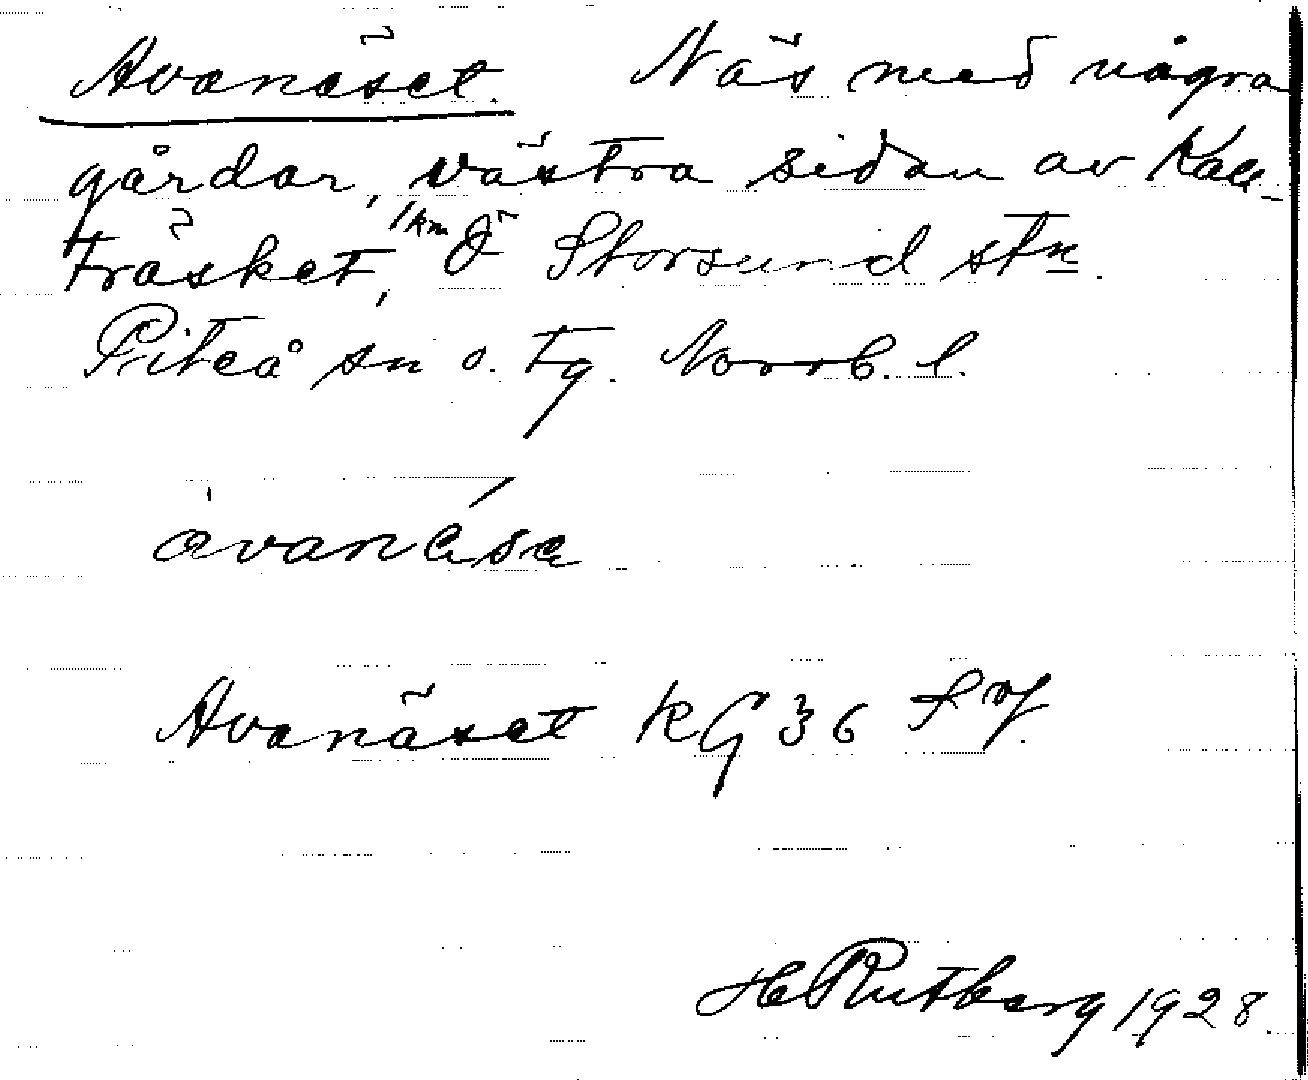 Avanäset. Näs med några
gårdar, västra sidan av Kall-
träsket, 1 km Ö Storsund stn.
Piteå sn o. tg. Norrb. l.
avanása
Avanäset KG 36
H Rutberg 1928.